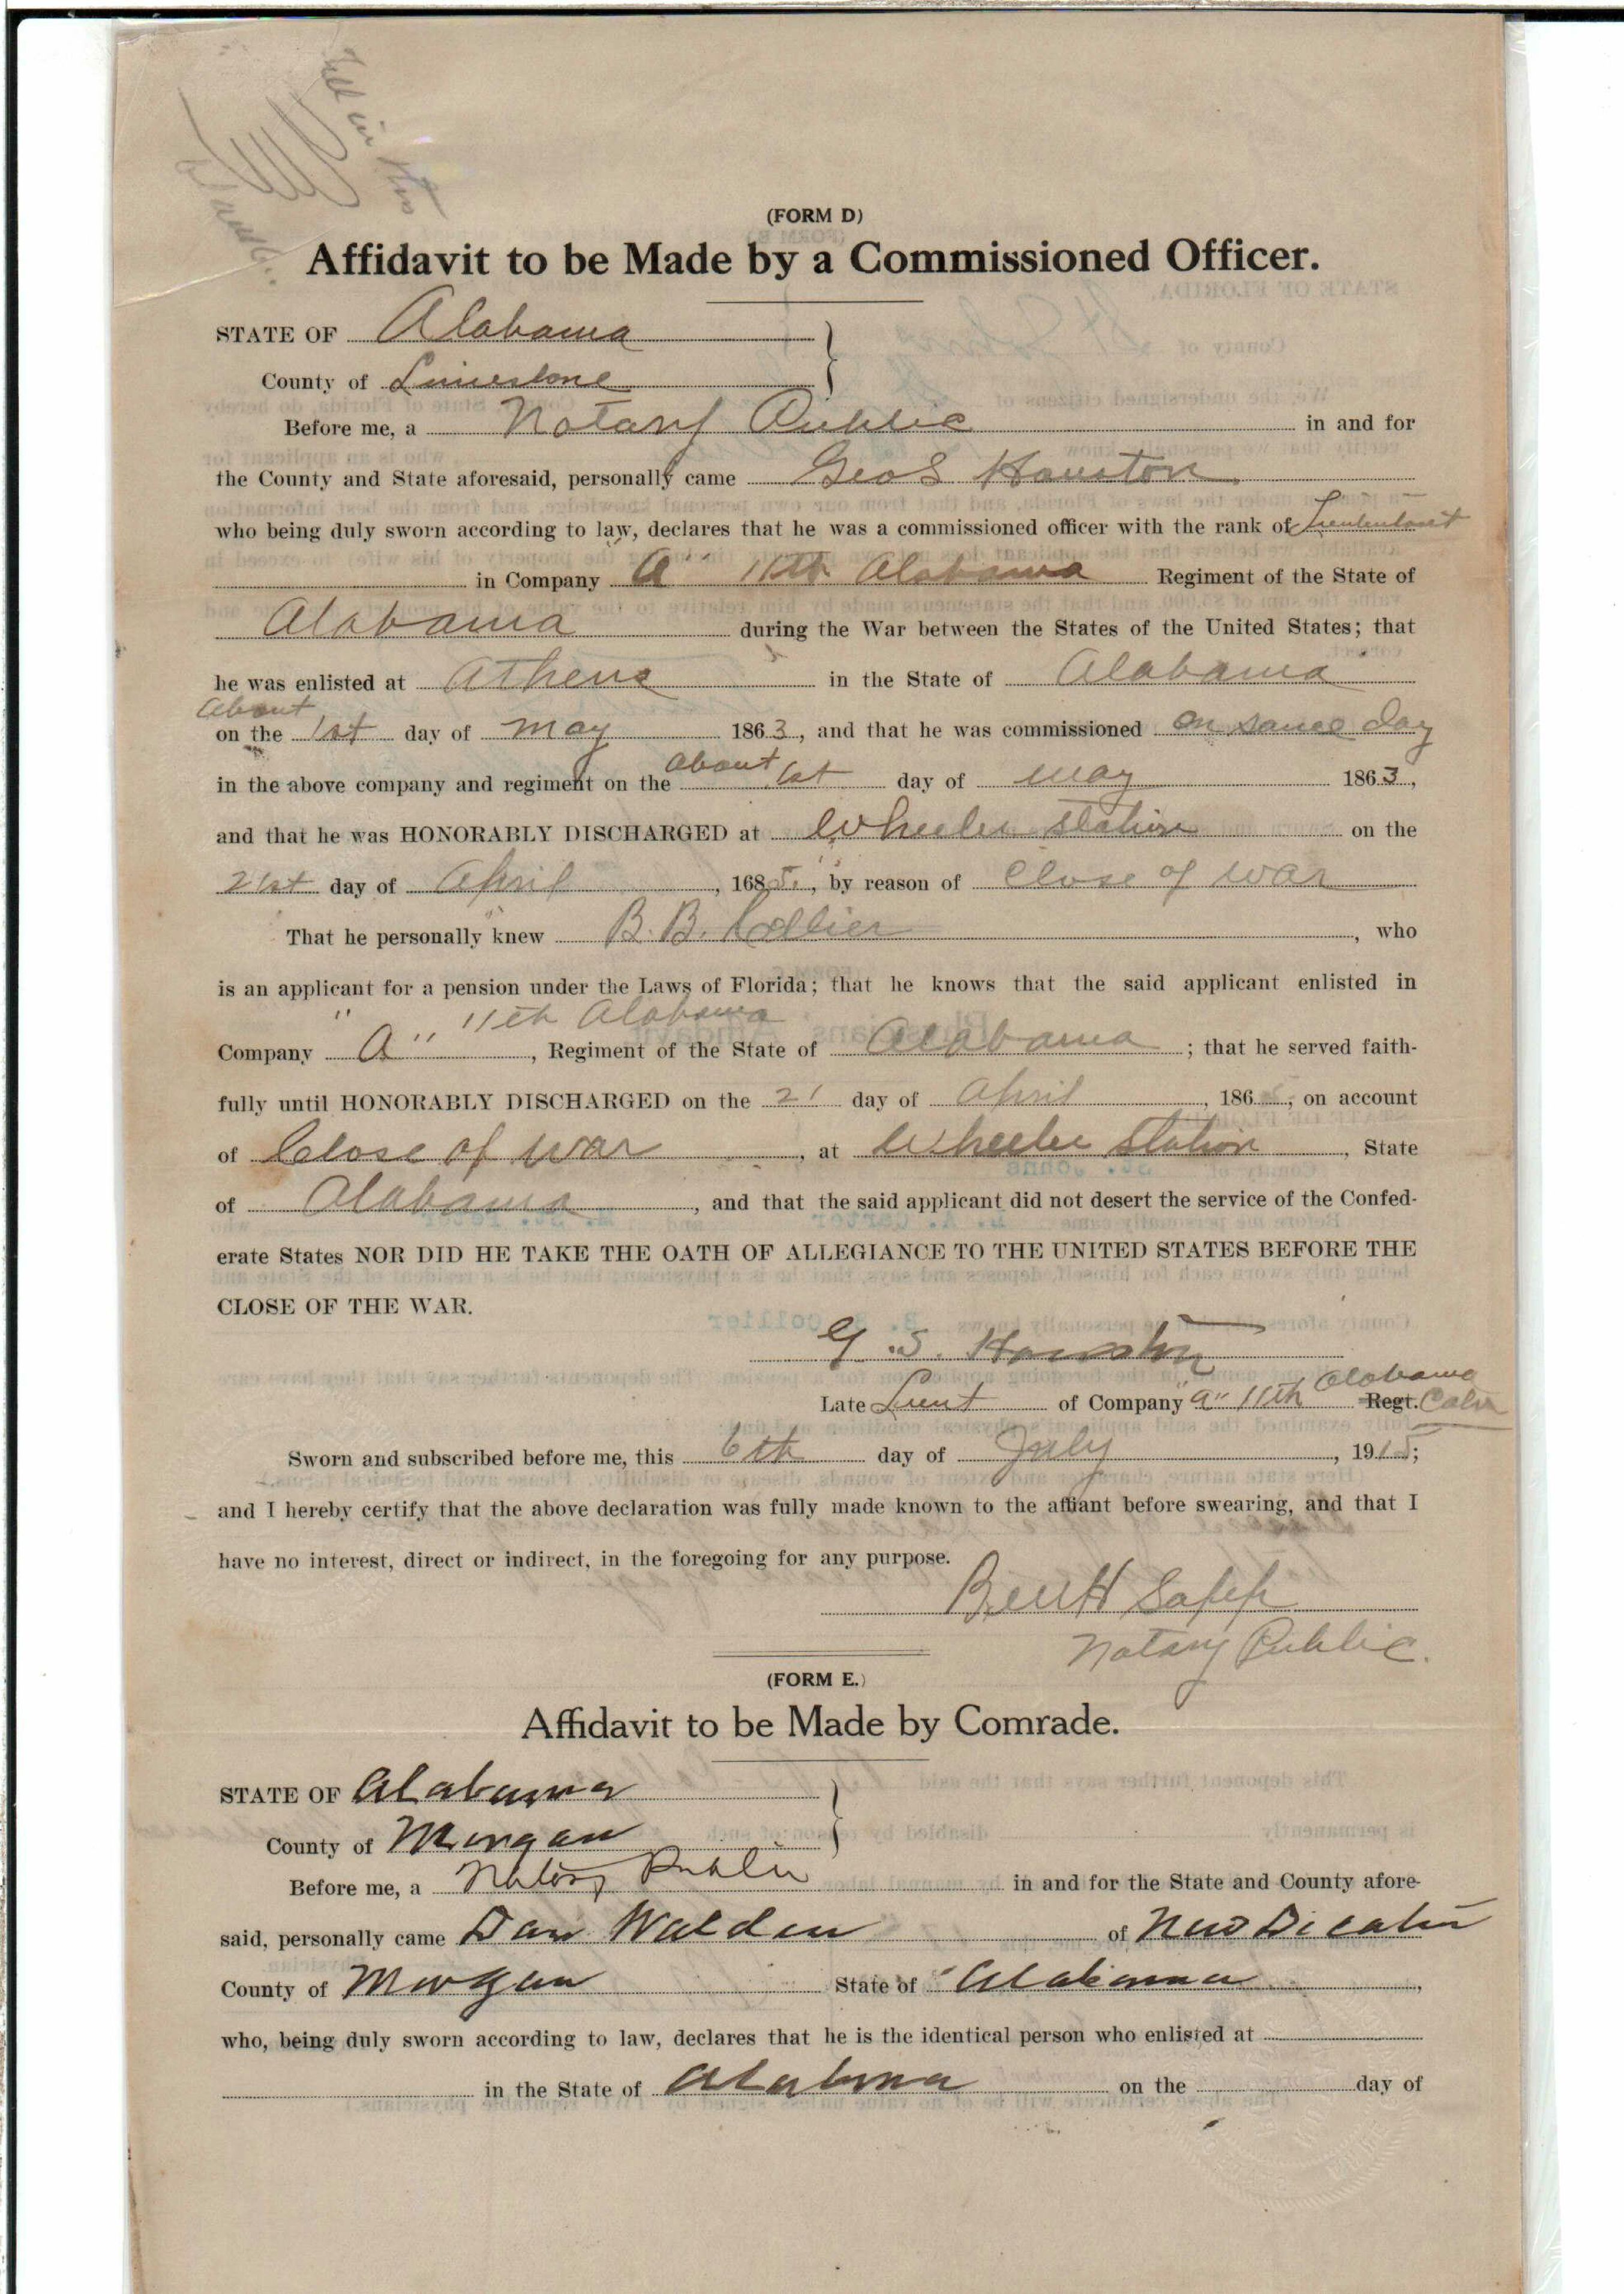 (FORM D)
Affidavit to be Made by a Commissioned Officer.
STATE OF Alabama
County of Limestone
Before me, a Notary Public in and for
the County and State aforesaid, personally came Geo S Houston
who being duly sworn according to law, declares that he was a commissioned officer with the rank of Lieutenant
in Company "A" 11th Alabama Regiment of the State of
Alabama during the War between the States of the United States; that
he was enlisted at Athens in the State of Alabama
About
on the 1st day of May 1863, and that he was commissioned on same day
in the above company and regiment on the about 1st day of May 1863,
and that he was HONORABLY DISCHARGED at Wheeler Station on the
21st day of April, 1685, by reason of Close of war
That he personally knew B. B. Collier, who
is an applicant for a pension under the Laws of Florida; that he knows that the said applicant enlisted in
11th Alabama
Company "A", Regiment of the State of Alabama; that he served faith-
fully until HONORABLY DISCHARGED on the 21 day of April, 1865, on account
of Close of war, at Wheeler Station, State
of Alabama, and that the said applicant did not desert the service of the Confed-
erate States NOR DID HE TAKE THE OATH OF ALLEGIANCE TO THE UNITED STATES BEFORE THE
CLOSE OF THE WAR.
G. S. Houston
Late Lieut of Company "A" 11th Alabama Regt. Calv
Sworn and subscribed before me, this 6th day of July, 1915;
and I hereby certify that the above declaration was fully made known to the affiant before swearing, and that I
have no interest, direct or indirect, in the foregoing for any purpose.
Ben H Sapp
Notary Public.
(FORM E.)
Affidavit to be Made by Comrade.
STATE OF Alabama
County of Morgan
Before me, a Notary Public in and for the State and County afore-
said, personally came Dan Walden of New Decatur
County of Morgan State of Alabama,
who, being duly sworn according to law, declares that he is the identical person who enlisted at
in the State of Alabama on the day of